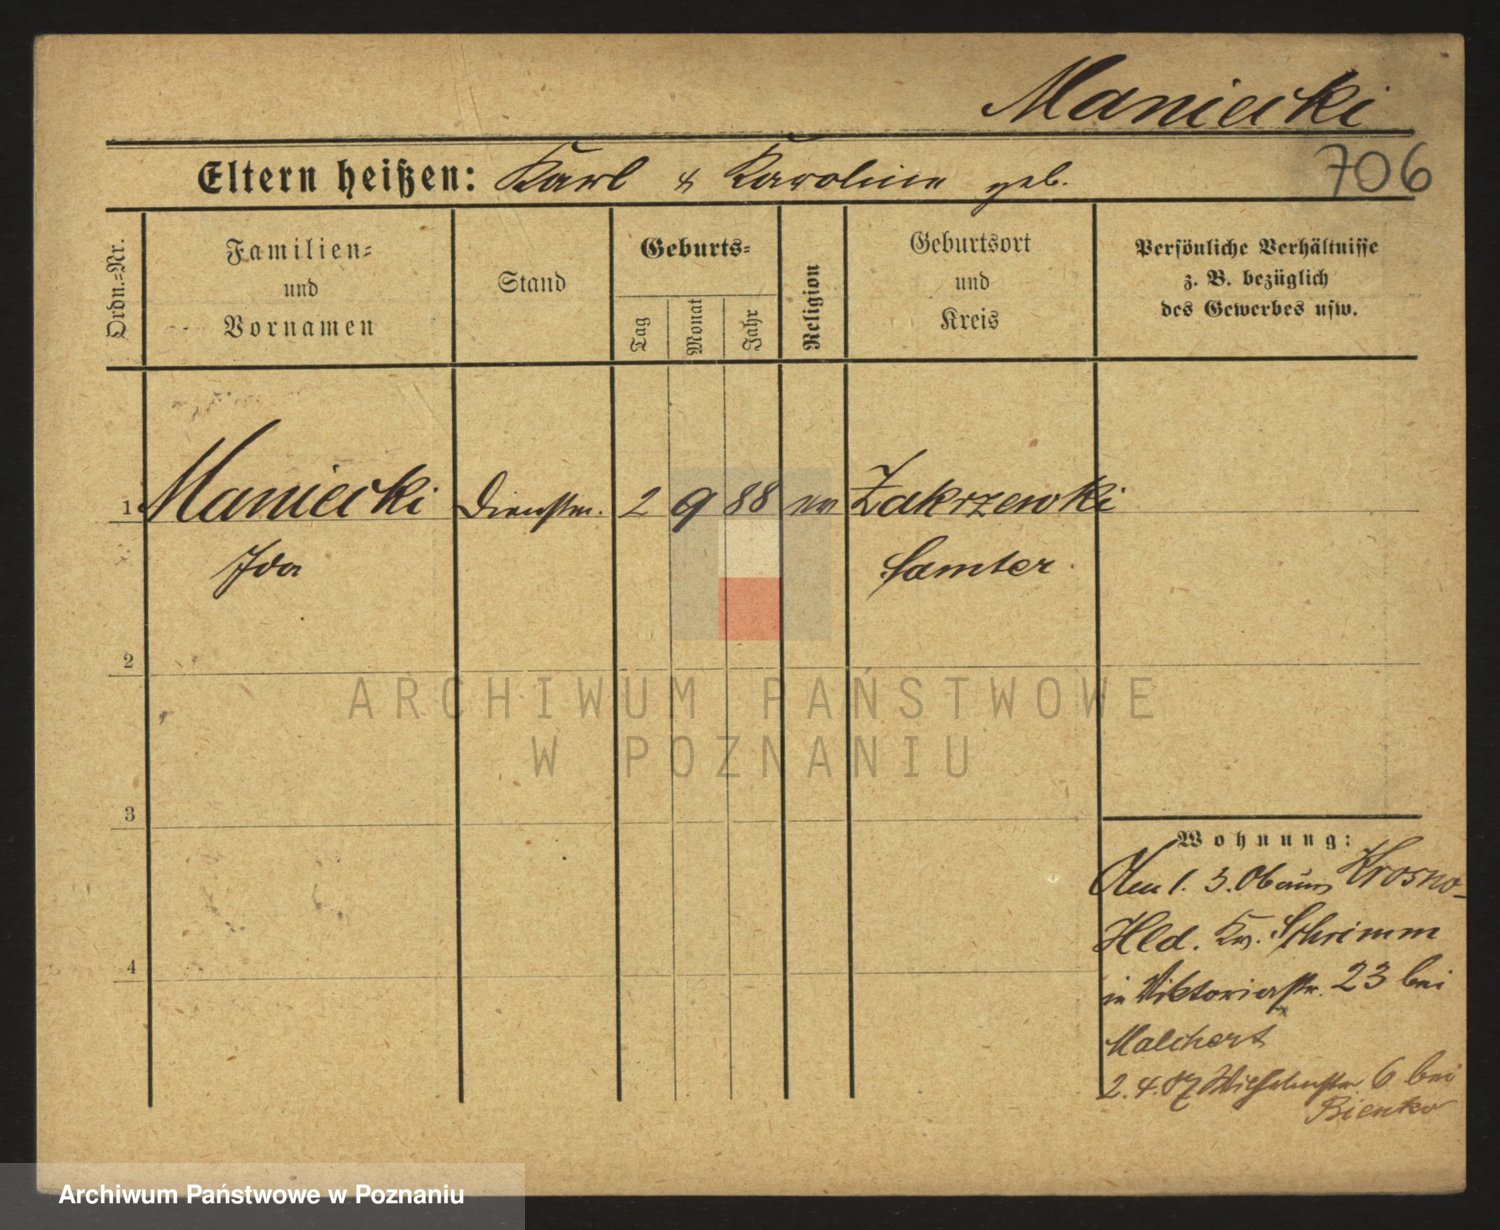 Maniecki
706
Eltern heißen: Karl & Karoline geb.
Ordn.-Nr.
Familien-
und
Vornamen
Stand
Geburts-
Tag
Monat
Jahr
Religion
Geburtsort
und
Kreis
Persönliche Verhältnisse
z. B. bezüglich
des Gewerbes usw.
1 Maniecki Dienstm. 2 9 88 Zakrzewki
Ida Samter
2
ARCHIWUM PAŃSTWOWE
W POZNANIU
3
Wohnung:
Krosno-
Hld. Kr. Schrimm
in Viktoriastr. 23 bei
Malchert
4
2. 4. 07 6 bei
Bienko
Archiwum Państwowe w Poznaniu